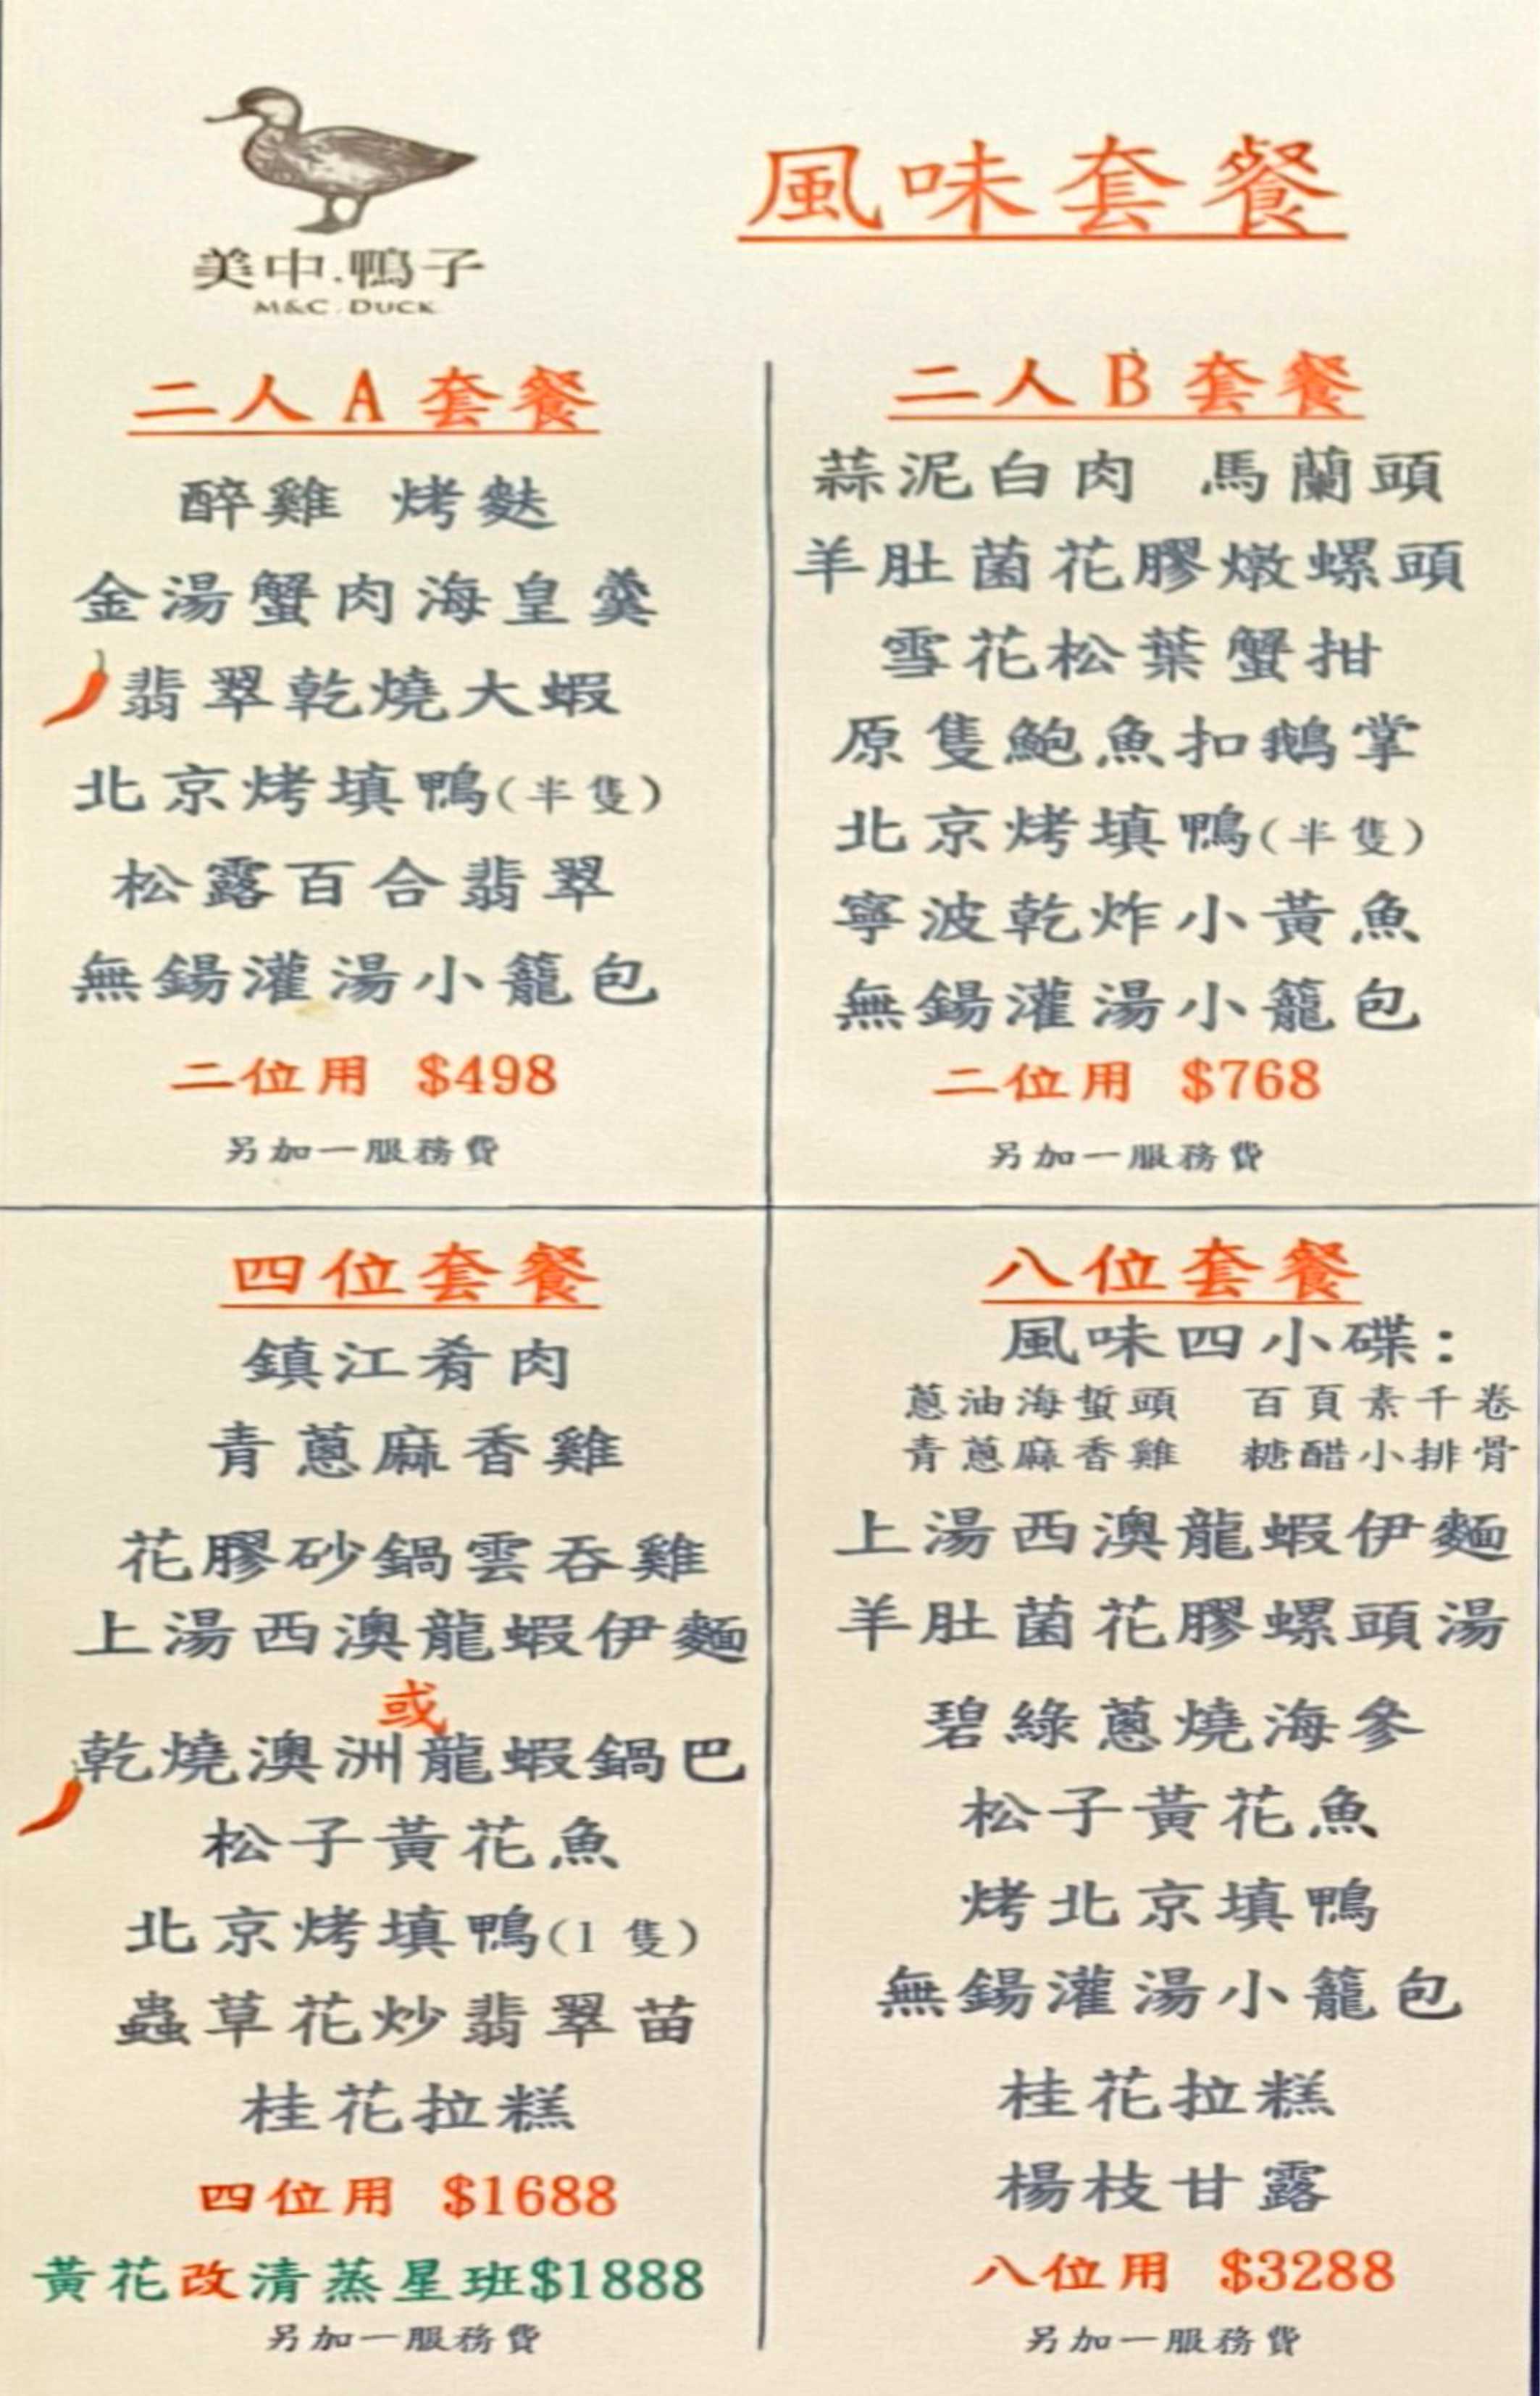 美中.鴨子
M&C DUCK
風味套餐
二人A套餐
醉雞 烤麩
金湯蟹肉海皇羹
翡翠乾燒大蝦
北京烤填鴨(半隻)
松露百合翡翠
無錫灌湯小籠包
二位用 $498
另加一服務費
二人B套餐
蒜泥白肉 馬蘭頭
羊肚菌花膠燉螺頭
雪花松葉蟹拑
原隻鮑魚扣鵝掌
北京烤填鴨(半隻)
寧波乾炸小黃魚
無錫灌湯小籠包
二位用 $768
另加一服務費
四位套餐
鎮江肴肉
青蔥麻香雞
花膠砂鍋雲吞雞
上湯西澳龍蝦伊麵
或
乾燒澳洲龍蝦鍋巴
松子黃花魚
北京烤填鴨(1隻)
蟲草花炒翡翠苗
桂花拉糕
四位用 $1688
黃花改清蒸星班$1888
另加一服務費
八位套餐
風味四小碟:
蔥油海蜇頭 百頁素千卷
青蔥麻香雞 糖醋小排骨
上湯西澳龍蝦伊麵
羊肚菌花膠螺頭湯
碧綠蔥燒海參
松子黃花魚
烤北京填鴨
無錫灌湯小籠包
桂花拉糕
楊枝甘露
八位用 $3288
另加一服務費